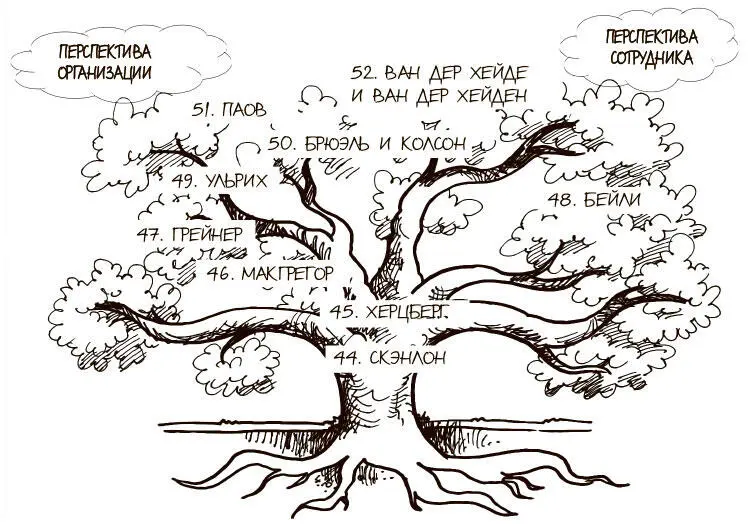 ПЕРСПЕКТИВА
ОРГАНИЗАЦИИ
ПЕРСПЕКТИВА
СОТРУДНИКА
52. ВАН ДЕР ХЕЙДЕ
И ВАН ДЕР ХЕЙДЕН
51. ПАОВ
50. БРЮЭЛЬ И КОЛСОН
49. УЛЬРИХ
48. БЕЙЛИ
47. ГРЕЙНЕР
46. МАКГРЕГОР
45. ХЕРЦБЕРГ
44. СКЭНЛОН